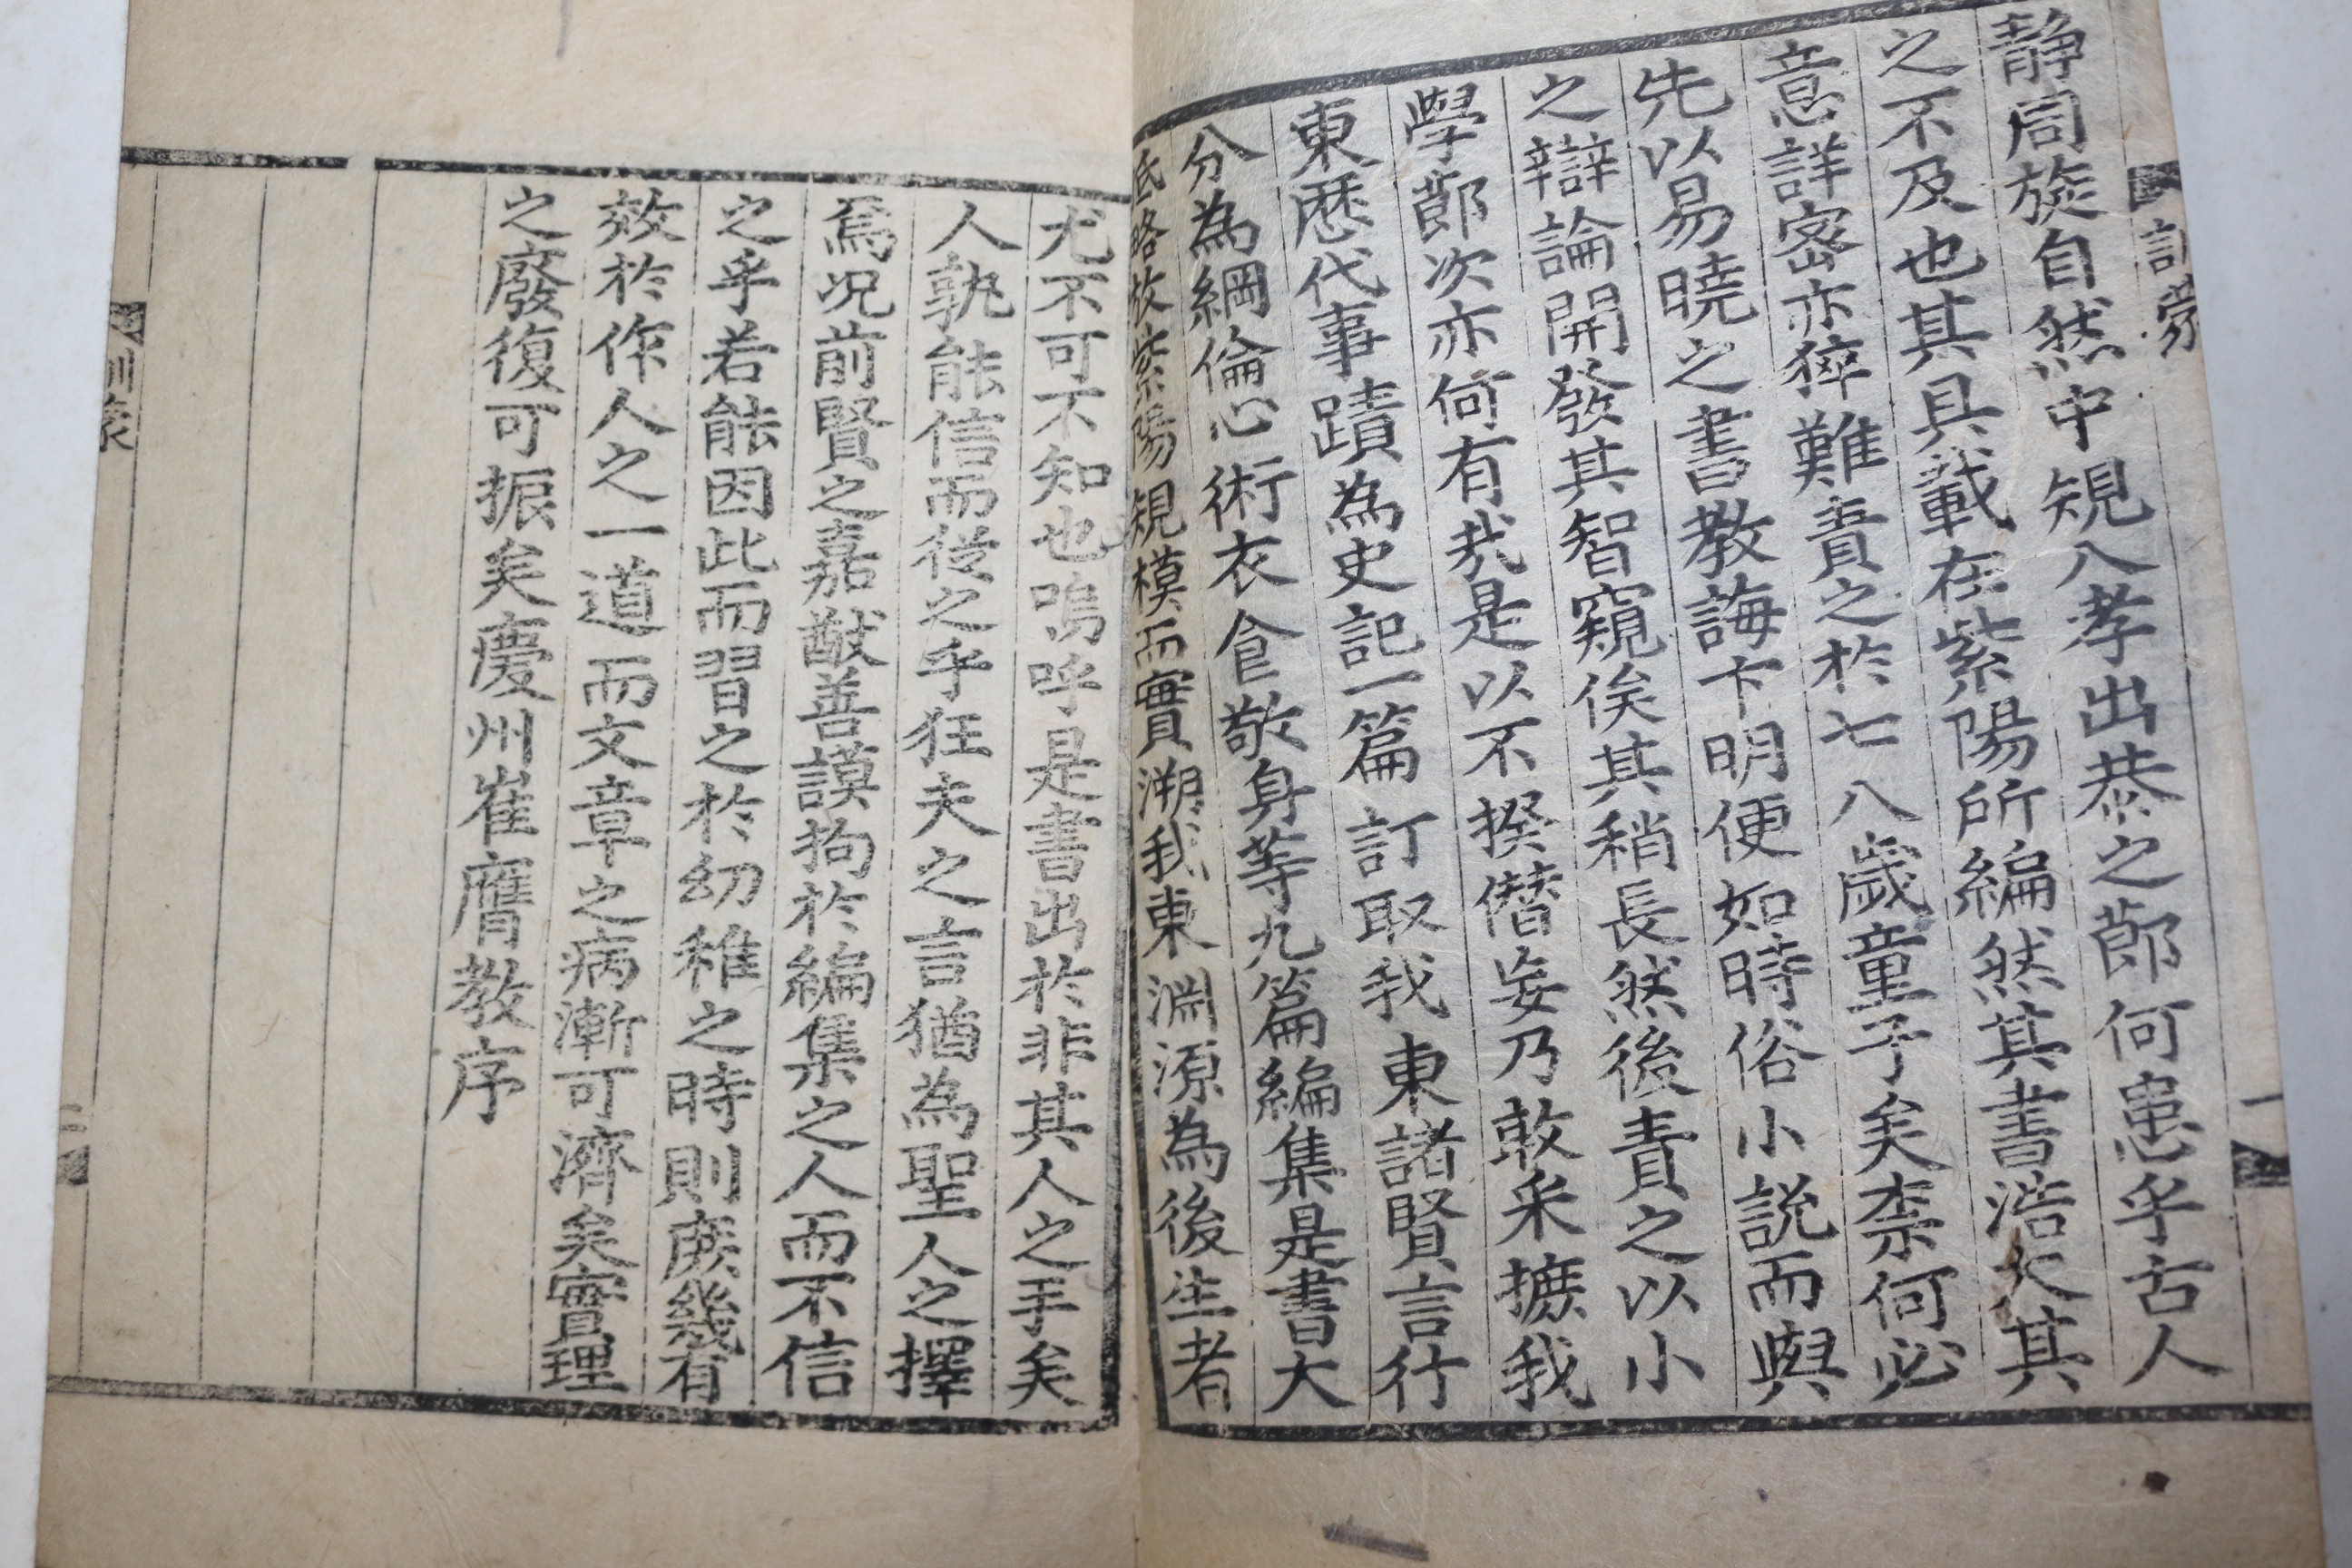 訓蒙
一
靜周旋自然中規入孝出恭之節何患乎古人
之不及也其具載在紫陽所編然其書浩大其
意詳密亦猝難責之於七八歲童子矣柰何必
先以易曉之書教誨卞明便如時俗小說而與
之辯論開發其智窺俟其稍長然後責之以小
學節次亦何有哉是以不揆僭妄乃敢采摭我
東歷代事蹟為史記一篇訂取我東諸賢言行
分為綱倫心術衣食敬身等九篇編集是書大
氐略放紫陽規模而實溯我東淵源為後生者
尤不可不知也嗚呼是書出於非其人之手矣
人孰能信而從之乎狂夫之言猶為聖人之擇
焉况前賢之嘉猷善謨拘於編集之人而不信
之乎若能因此而習之於幼稚之時則庶幾有
效於作人之一道而文章之病漸可濟矣實理
之廢復可振矣慶州崔膺教序
訓蒙
二